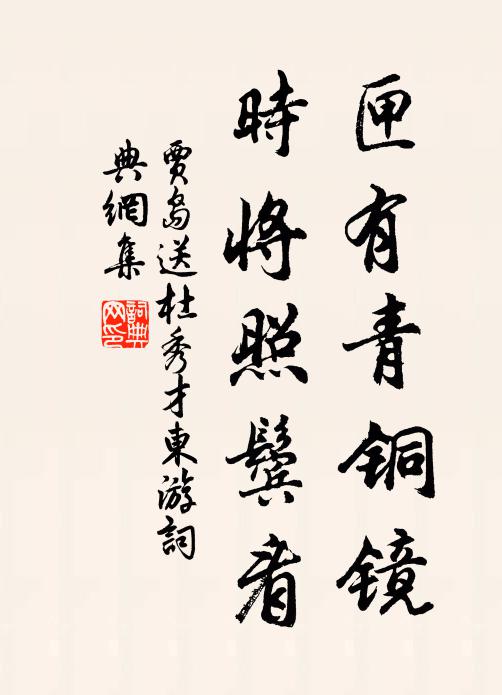 匣有青铜镜
時將照鬓看
賈島送杜秀才東游詞
典網集
詞典网印